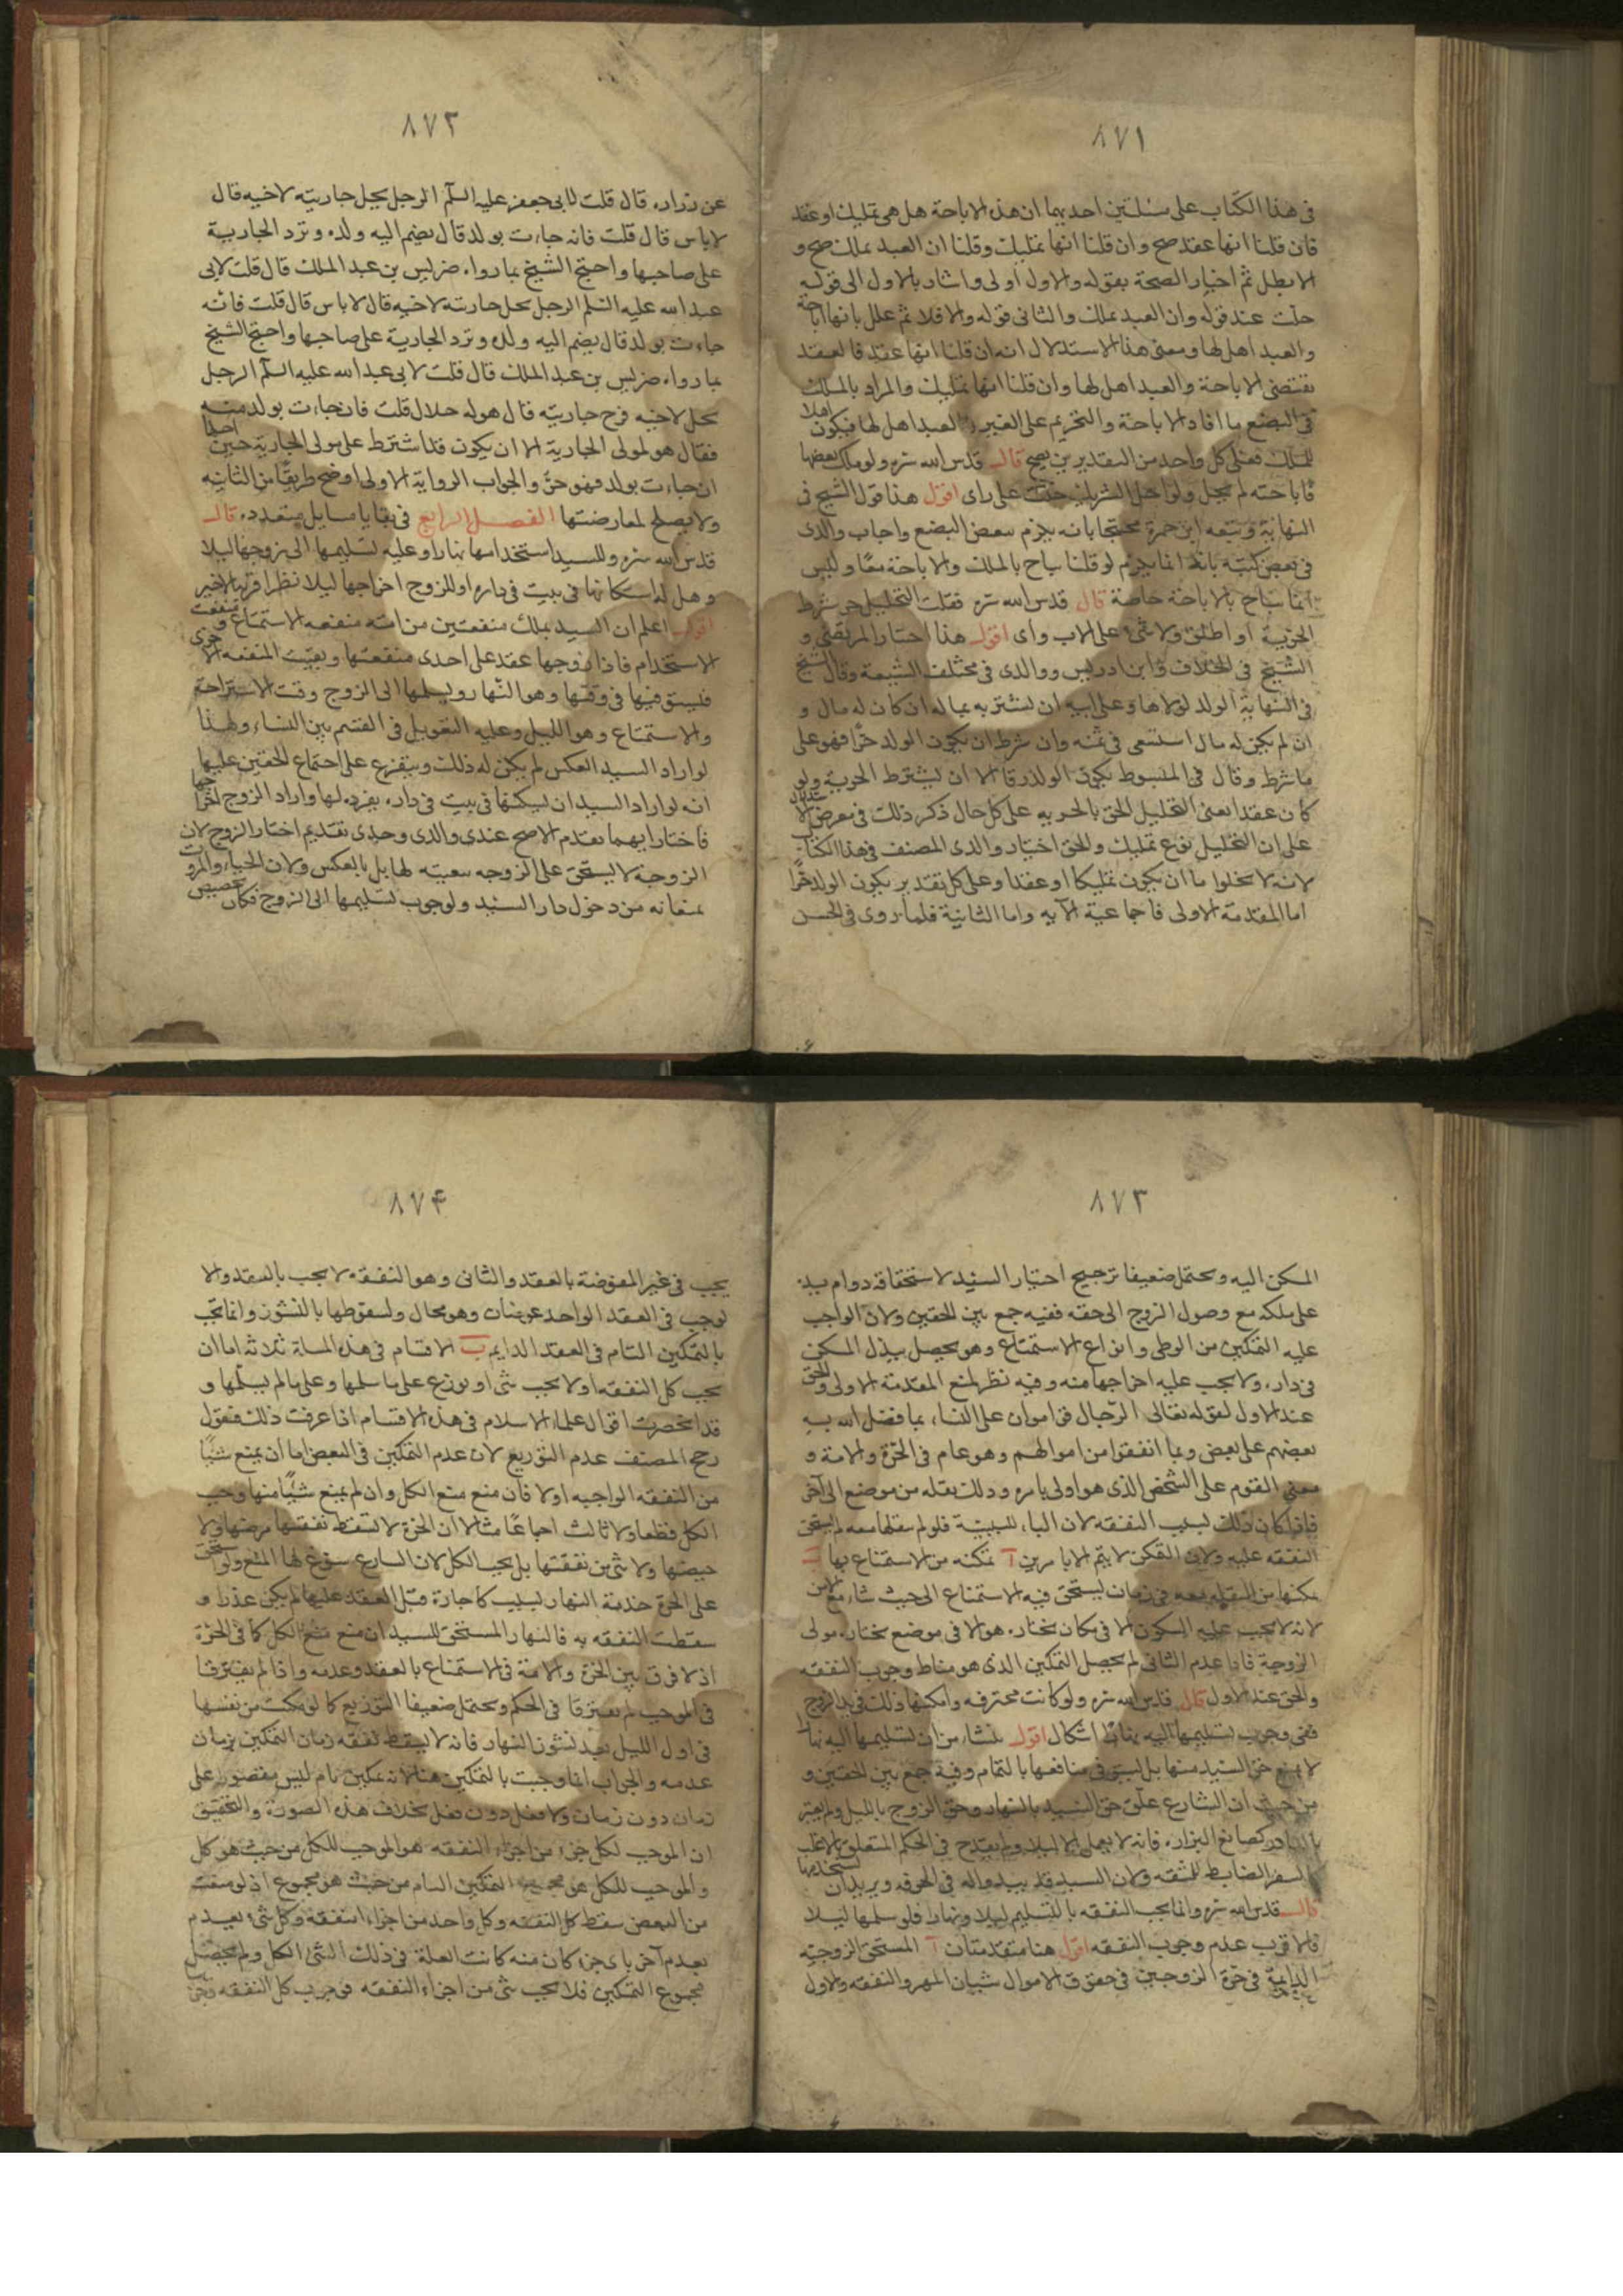 ٨٧١
فى هذا الكتاب على مسئلتين احديهما ان هذه الاباحة هل هى تمليك او عقد
فان قلنا انها عقد صح وان قلنا انها تمليك وقلنا ان العبد يملك صح و
الا بطل ثم اختار الصحة بقوله والاول اولى واشار بالاول الى قوله
حلت عند قوله وان العبد يملك والثانى قوله والا فلا ثم علل بانها اباحة
والعبد اهل لها ومعنى هذا الاستدلال انه ان قلنا انها عقد فالعقد
يقتضى الاباحة والعبد اهل لها وان قلنا انها تمليك والمراد بالملك
فى البضع ما افاد الاباحة والتحريم على الغير والعبد اهل لها فيكون اهلا
للملك فعلى كل واحد من التقديرين يصح قال قدس الله سره ولو ملك بعضها
فاباحته لم يحل ولو احل الشريك حلت على راى اقول هذا قول الشيخ فى
النهاية وتبعه ابن حمزة محتجا بانه يلزم تبعض البضع واجاب والدى
فى بعض كتبه بانه انما يلزم لو قلنا يباح بالملك والاباحة معا وليس
انما يباح بالاباحة خاصة قال قدس الله سره فقلت التحليل حر شرط
الحرية او اطلق ولا شئ على الاب راى اقول هذا اختيار المرتضى و
الشيخ فى الخلاف وابن ادريس ووالدى فى مختلف الشيعة وقال الشيخ
فى النهاية الولد لمولاها وعلى ابيه ان يشتريه بماله ان كان له مال و
ان لم يكن له مال استسعى فى ثمنه وان شرط ان يكون الولد حرا فهو على
ما شرط وقال فى المبسوط يكون الولد رقا الا ان يشترط الحرية ولو
كان عقدا يعنى التحليل لحق بالحرية على كل حال ذكر ذلك فى معرض الاستدلال
على ان التحليل نوع تمليك والحق اختيار والدى المصنف فى هذا الكتاب
لانه لا يخلوا ما ان يكون تمليكا او عقدا وعلى كل تقدير يكون الولد حرا
اما المقدمة الاولى فاجماعية الآية واما الثانية فلما روى فى الحسن
٨٧٢
عن زراره قال قلت لابى جعفر عليه السلم الرجل يحل جاريته لاخيه قال
لا باس قال قلت فانه جاءت بولد قال يضم اليه ولده وترد الجارية
على صاحبها واحتج الشيخ بما رواه ضريس بن عبد الملك قال قلت لابى
عبد الله عليه السلم الرجل يحل جاريته لاخيه قال لا باس قال قلت فانه
جاءت بولد قال يضم اليه ولده وترد الجارية على صاحبها واحتج الشيخ
بما رواه ضريس بن عبد الملك قال قلت لابى عبد الله عليه السلم الرجل
يحل لاخيه فرج جاريته قال هو له حلال قلت فان جاءت بولد منه
فقال هو لمولى الجارية الا ان يكون قد اشترط على مولى الجارية حين احلها
ان جاءت بولد فهو حر والجواب الرواية الاولى اوضح طريقا من الثانيه
ولا يصلح لمعارضتها الفصل الرابع فى بقايا مسايل متعدده قال
قدس الله سره وللسيد استخدامها نهارا وعليه تسليمها الى زوجها ليلا
وهل له اسكانها فى بيت فى داره او للزوج اخراجها ليلا نظر اقربه الاخير
اقول اعلم ان السيد يملك منفعتين من امته منفعه الاستمتاع ومنفعت
الاستخدام فاذا زوجها عقد على احدى منفعتها وبقيت المنفعه الاخرى
فليستوفيها فى وقتها وهو النهار ويسلمها الى الزوج وقت الاستراحة
والاستمتاع وهو الليل وعليه التعويل فى القسم بين النساء ولهذا
لو اراد السيد العكس لم يكن له ذلك ويتفرع على اجتماع الحقين عليها
انه لو اراد السيد ان يسكنها فى بيت فى داره يفرده لها واراد الزوج اخراجها
فاختار ايهما يقدم الاصح عندى والدى وجدى تقديم اختيار الزوج لان
الزوجة لا يستحق على الزوجه تبعيته لها بل بالعكس ولان الحياء والمروت
يمنعانه من دخول دار السيد ولوجوب تسليمها الى الزوج فكان تخصيص
٨٧٣
المسكن اليه ويحتمل ضعيفا ترجيح اختيار السيد لاستحقاقه دوام يده
على ملكه مع وصول الزوج الى حقه ففيه جمع بين الحقين ولان الواجب
عليه التمكين من الوطى وانواع الاستمتاع وهو يحصل ببذل المسكن
فى داره ولا يجب عليه اخراجها منه وفيه نظر لمنع المقدمة الاولى والحق
عند الاول لقوله تعالى الرجال قوامون على النساء بما فضل الله به
بعضهم على بعض وبما انفقوا من اموالهم وهو عام فى الحرة والامة و
معنى القوم على الشخص الذى هو اولى بامره وذلك نقله من موضع الى آخر
فاذا كان ذلك لسبب النفقه لان الباء للسببية فلو لم ينقلها معه لم يستحق
النفقه عليه ولان التمكن لا يتم الا بامرين آ تمكنه من الاستمتاع بها ب
تمكنها من النقله معه فى زمان يستحق فيه الاستمتاع الى حيث شاء مع الامن
لانه لا يجب عليه السكون الا فى مكان يختاره هو الا فى موضع يختاره مولى
الزوجة فاذا عدم الثانى لم يحصل التمكين الذى هو مناط وجوب النفقه
والحق عند الاول قال قدس الله سره ولو كانت محترفه وامكنها ذلك فى يد الزوج
ففى وجوب تسليمها اليه نهارا اشكال اقول ينشاء من ان تسليمها اليه نهارا
لا يمنع حق السيد منها بل يستوفى منافعها بالتمام وفيه جمع بين الحقين و
من حيث ان الشارع علق حق السيد بالنهار وحق الزوج بالليل ولم يعتبر
بالنادر كصانع البزاره فانه لا يعمل الا ليلا ولم يقدح فى الحكم المتعلق بالاغلب
كالسفر الضابط للمشقه ولان السيد قد يبدو له فى الحرفه ويريد ان يستخدمها
قال قدس الله سره وانما يجب النفقه بالتسليم ليلا ونهارا فلو سلمها ليلا
فالاقرب عدم وجوب النفقه اقول هنا مقدمتان آ المستحق الزوجيه
الدايمة فى حق الزوجين فى حقوق الاموال شيئان المهر والنفقه والاول
٨٧۴
يجب فى غير المفوضة بالعقد والثانى وهو النفقه لا يجب بالعقد والا
لوجب فى العقد الواحد عوضان وهو محال ولسقوطها بالنشوز وانما تجب
بالتمكين التام فى العقد الدايم ب الاقسام فى هذه المسلة ثلاثه اما ان
يجب كل النفقه او لا يجب شئ او توزع على ما سلمها وعلى ما لم يسلمها و
قد انحصرت اقوال علماء الاسلام فى هذه الاقسام اذا عرفت ذلك فنقول
رجح المصنف عدم التوزيع لان عدم التمكين فى البعض اما ان يمنع شيئا
من النفقه الواجبه او لا فان منع منع الكل وان لم يمنع شيئا منها وجب
الكل قطعا ولا ثالث اجماعا مثالا ان الحرة لا تسقط نفقتها مرضها ولا
حيضها ولا شئ من نفقتها بل يجب الكل لان الشارع سوغ لها المنع ولو استحق
على الحرة خدمة النهار لسبب كاجارة قبل العقد عليها لم يكن عذرا و
سقطت النفقه به فالنهار المستحق للسيد ان منع منع الكل كما فى الحرة
اذ لا فرق بين الحرة والامة فى الاستمتاع بالعقد وعدمه واذا لم يفترقا
فى الموجب لم يفترقا فى الحكم ويحتمل ضعيفا التوزيع كما لو مكنت من نفسها
فى اول الليل بعد نشوز النهار فانه لا يسقط نفقه زمان التمكين بزمان
عدمه والجواب انما وجبت بالتمكين هنا لانه تمكين تام ليس مقصورا على
زمان دون زمان ولا فعل دون فعل بخلاف هذه الصورة والتحقيق
ان الموجب لكل جزء من اجزاء النفقه هو الموجب للكل من حيث هو كل
والموجب للكل هو مجموع التمكين التام من حيث هو مجموع اذ لو منعت
من البعض سقط كل النفقه وكل واحد من اجزاء النفقة وكل شئ يعدم
بعدم آخر باى جزء كان منه كانت العلة فى ذلك الشئ الكل ولم يحصل
مجموع التمكين فلا يجب شئ من اجزاء النفقه فوجوب كل النفقه